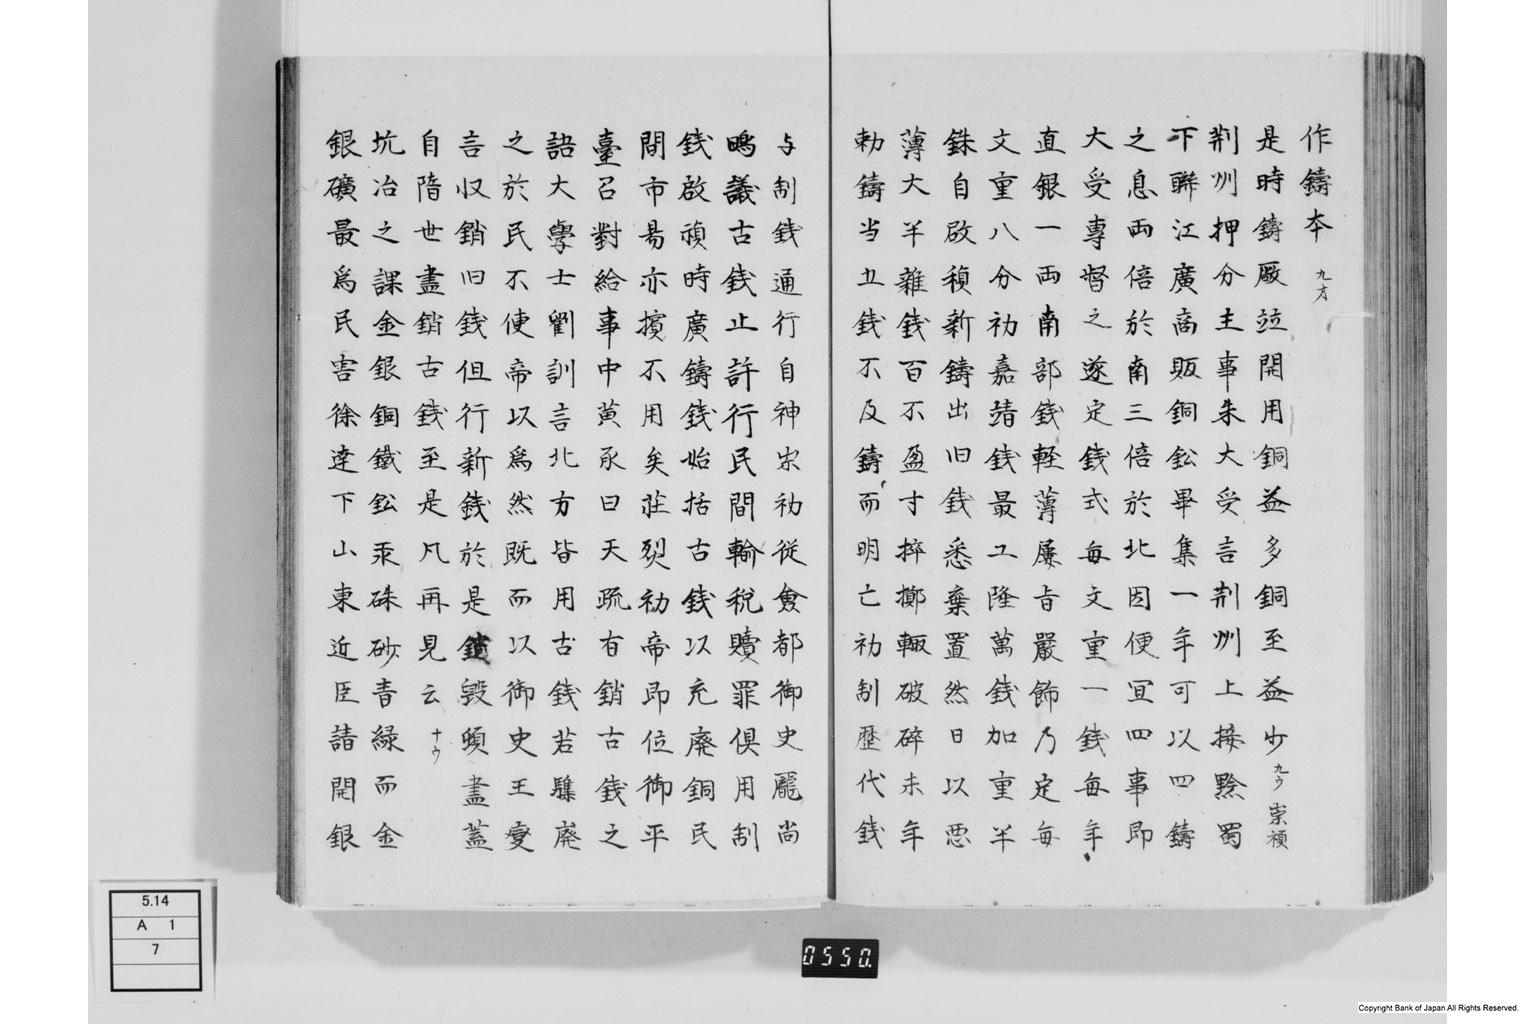 作鑄本 九才
是時鑄厰竝開用銅益多銅至益少 九ウ 崇禎
荆州押分主事朱大受言荆州上接黔蜀
下聯江廣商販銅鈆畢集一年可以四鑄
之息兩倍於南三倍於北因便宜四事即
大受專督之遂定錢式每文重一錢每年
直銀一兩南部錢輕薄屢旨嚴飾乃定每
文重八分初嘉靖錢最工隆萬錢加重半
銖自啟禎新鑄出旧錢悉棄置然日以惡
薄大半雜錢百不盈寸捽擲輙破碎未年
勅鑄当五錢不及鑄而明亡初制歴代錢
与制錢通行自神宗初從僉都御史龐尚
鵬議古錢止許行民間輸稅贖罪俱用制
錢啟禎時廣鑄錢始括古錢以充廢銅民
間市昜亦擯不用矣莊烈初帝即位御平
臺召對給事中黄承曰天疏有銷古錢之
語大學士劉訓言北方皆用古錢若驟廢
之於民不便帝以爲然既而以御史王燮
言収銷旧錢但行新錢於是銷毀頓盡蓋
自隋世盡銷古錢至是凡再見云 十ウ
坑冶之課金銀銅鐵鈆汞硃砂青緑而金
銀礦最爲民害徐達下山東近臣請開銀
5.14
A 1
7
0550.
Copyright Bank of Japan All Rights Reserved.